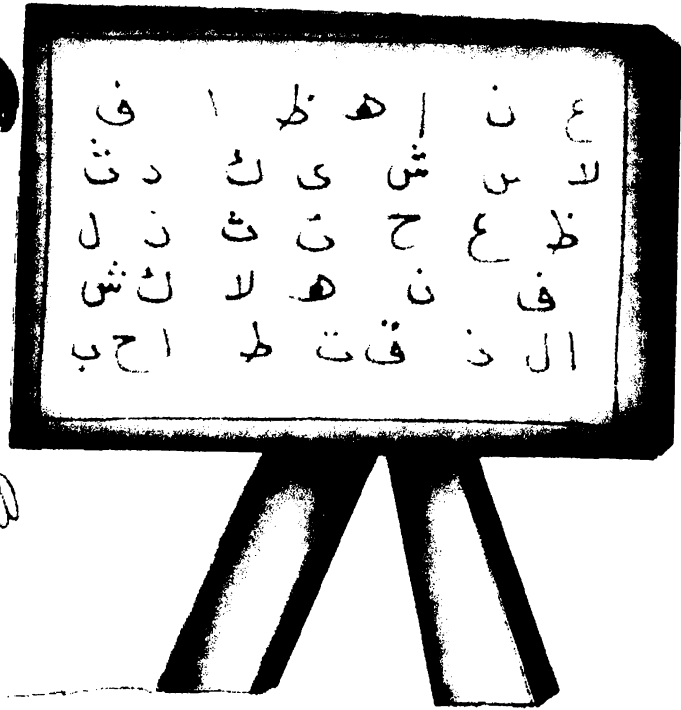 ع ن إ ه ظ ا ف
لا س ش ى ك د ث
ظ ع ح ت ث ز ل
ف ن ه لا ك ش
ا ل ذ ق ت ط ا ح ب